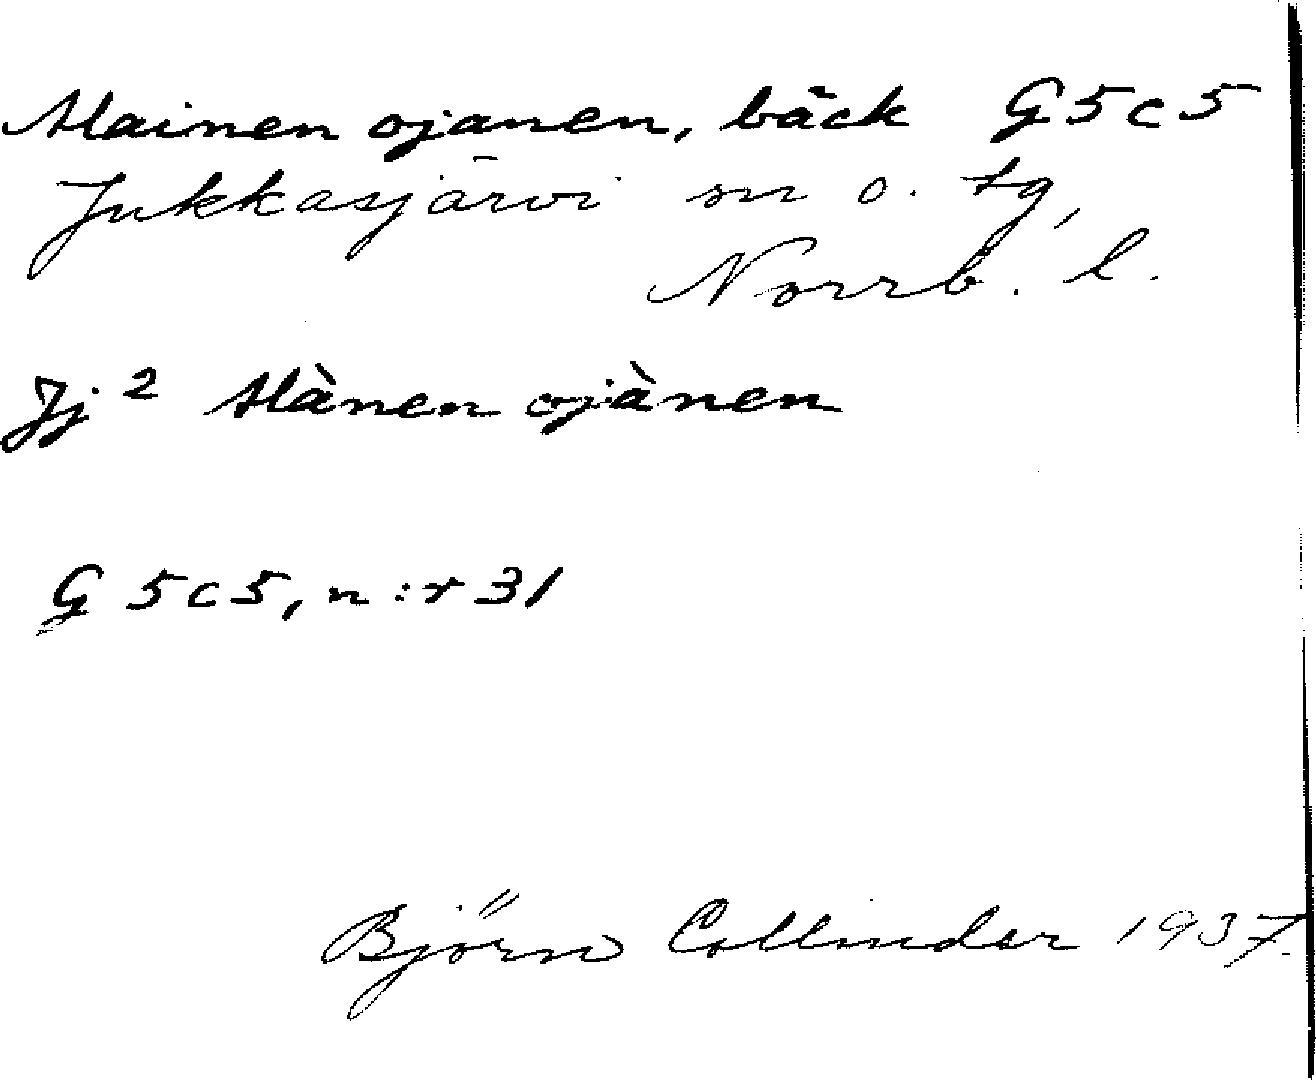 Alainen ojanen, bäck G5c5
Jukkasjärvi sn o. tg,
Norrb. l.
Jj 2 Alànen ojànen
G 5c5, n:r 31
Björn Collinder 1937.